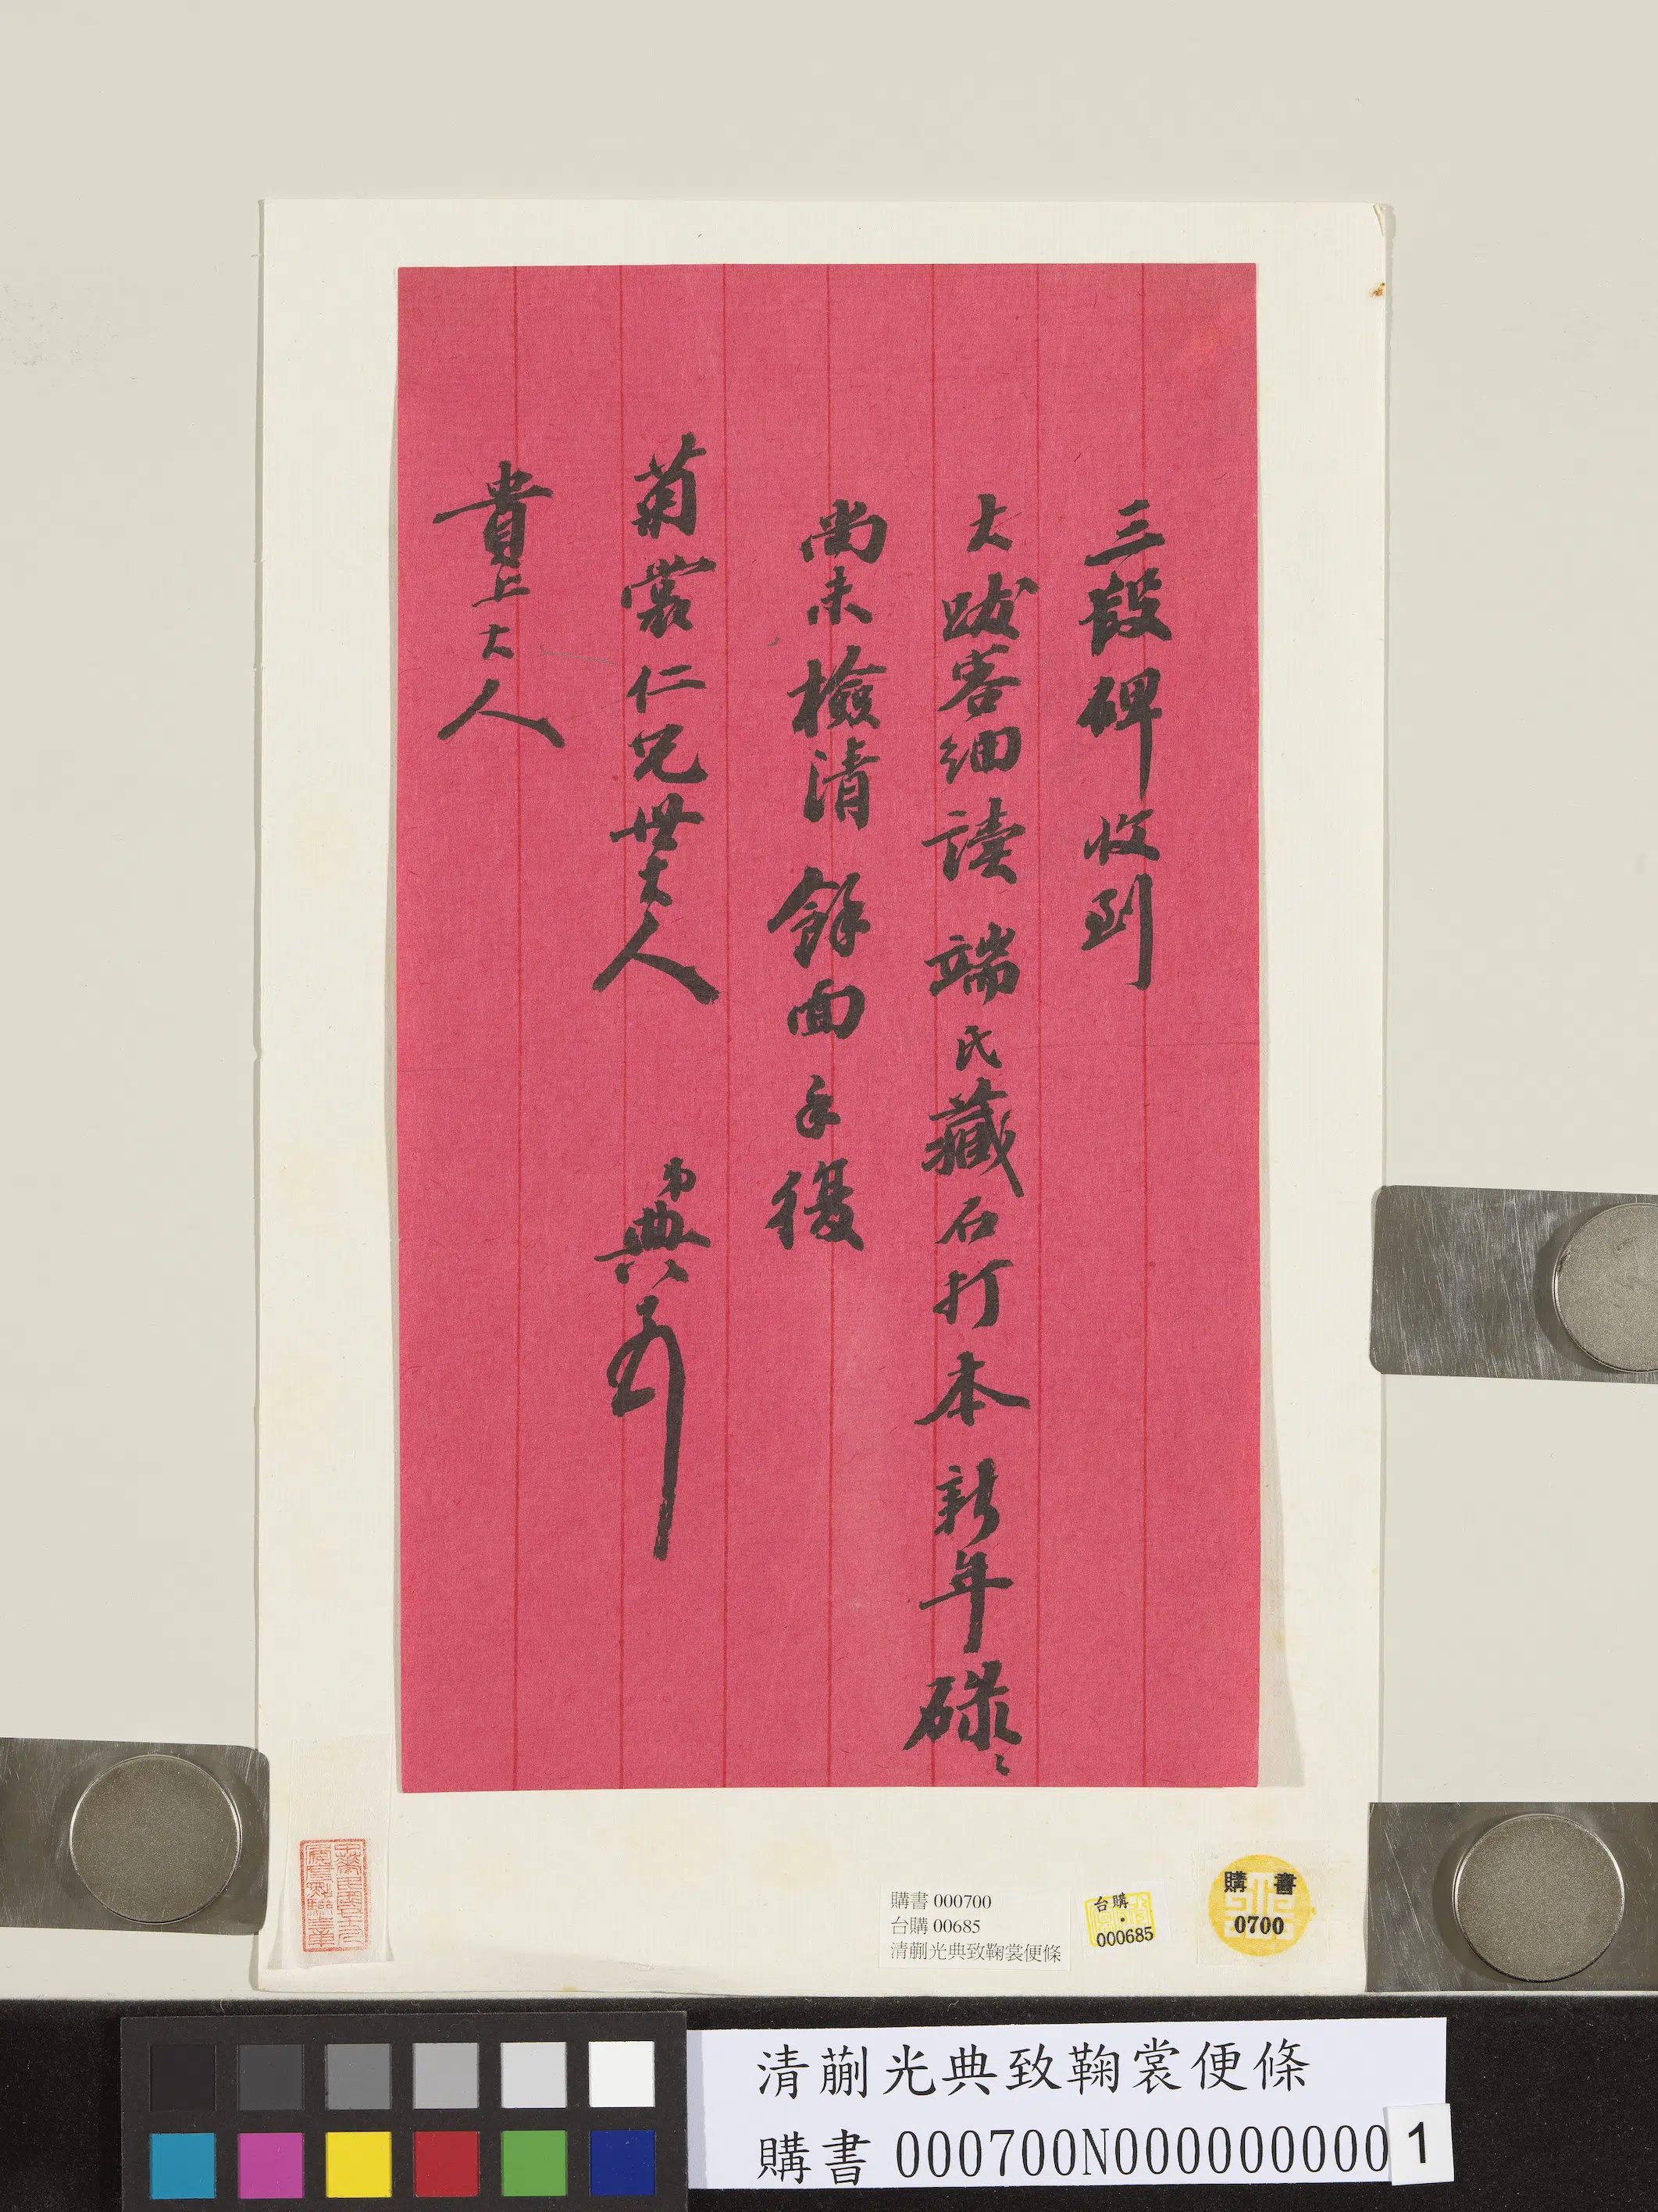 三段碑收到
大跋容細讀端氏藏石打本新年碌〻
尚未檢清餘面手復
菊裳仁兄世大人 弟典
貴上大人
購書 000700
台購 00685
清蒯光典致鞠裳便條
台購
000685
購書
0700
清蒯光典致鞠裳便條
購書 000700N000000000
1